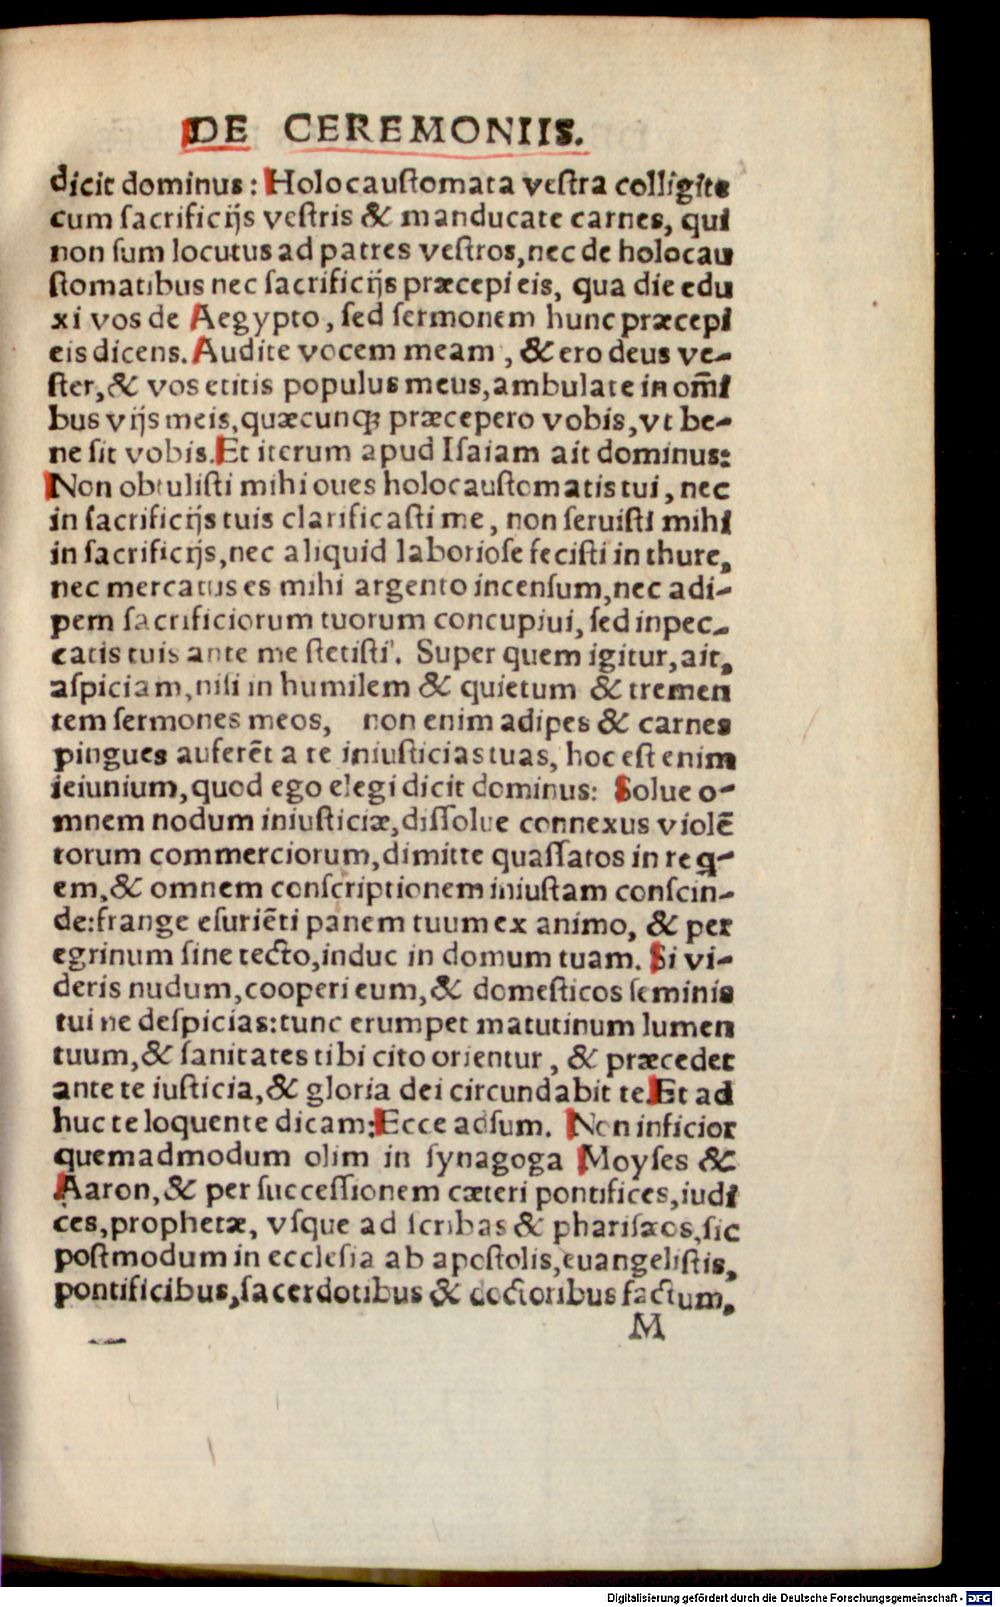 DE CEREMONIIS.
dicit dominus: Holocaustomata vestra colligite
cum sacrificijs vestris & manducate carnes, qui
non sum locutus ad patres vestros, nec de holocau
stomatibus nec sacrificijs præcepi eis, qua die edu
xi vos de Aegypto, sed sermonem hunc præcepi
eis dicens. Audite vocem meam, & ero deus ve-
ster, & vos eritis populus meus, ambulate in om̄i
bus vijs meis, quæcunqꝫ præcepero vobis, vt be-
ne sit vobis. Et iterum apud Isaiam ait dominus:
Non obtulisti mihi oues holocaustomatis tui, nec
in sacrificijs tuis clarificasti me, non seruisti mihi
in sacrificijs, nec aliquid laboriose fecisti in thure,
nec mercatus es mihi argento incensum, nec adi-
pem sacrificiorum tuorum concupiui, sed in pec-
catis tuis ante me stetisti. Super quem igitur, ait,
aspiciam, nisi in humilem & quietum & tremen
tem sermones meos, non enim adipes & carnes
pingues auferēt a te iniusticias tuas, hoc est enim
ieiunium, quod ego elegi dicit dominus: Solue o-
mnem nodum iniusticiæ, dissolue connexus violē
torum commerciorum, dimitte quassatos in req-
em, & omnem conscriptionem iniustam conscin-
de: frange esuriēti panem tuum ex animo, & per
egrinum sine tecto, induc in domum tuam. Si vi-
deris nudum, cooperi eum, & domesticos seminis
tui ne despicias: tunc erumpet matutinum lumen
tuum, & sanitates tibi cito orientur, & præcedet
ante te iusticia, & gloria dei circundabit te. Et ad
huc te loquente dicam: Ecce adsum. Non inficior
quemadmodum olim in synagoga Moyses &
Aaron, & per successionem cæteri pontifices, iudi
ces, prophetæ, vsque ad scribas & pharisæos, sic
postmodum in ecclesia ab apostolis, euangelistis,
pontificibus, sacerdotibus & doctoribus factum,
M
Digitalisierung gefördert durch die Deutsche Forschungsgemeinschaft - DFG